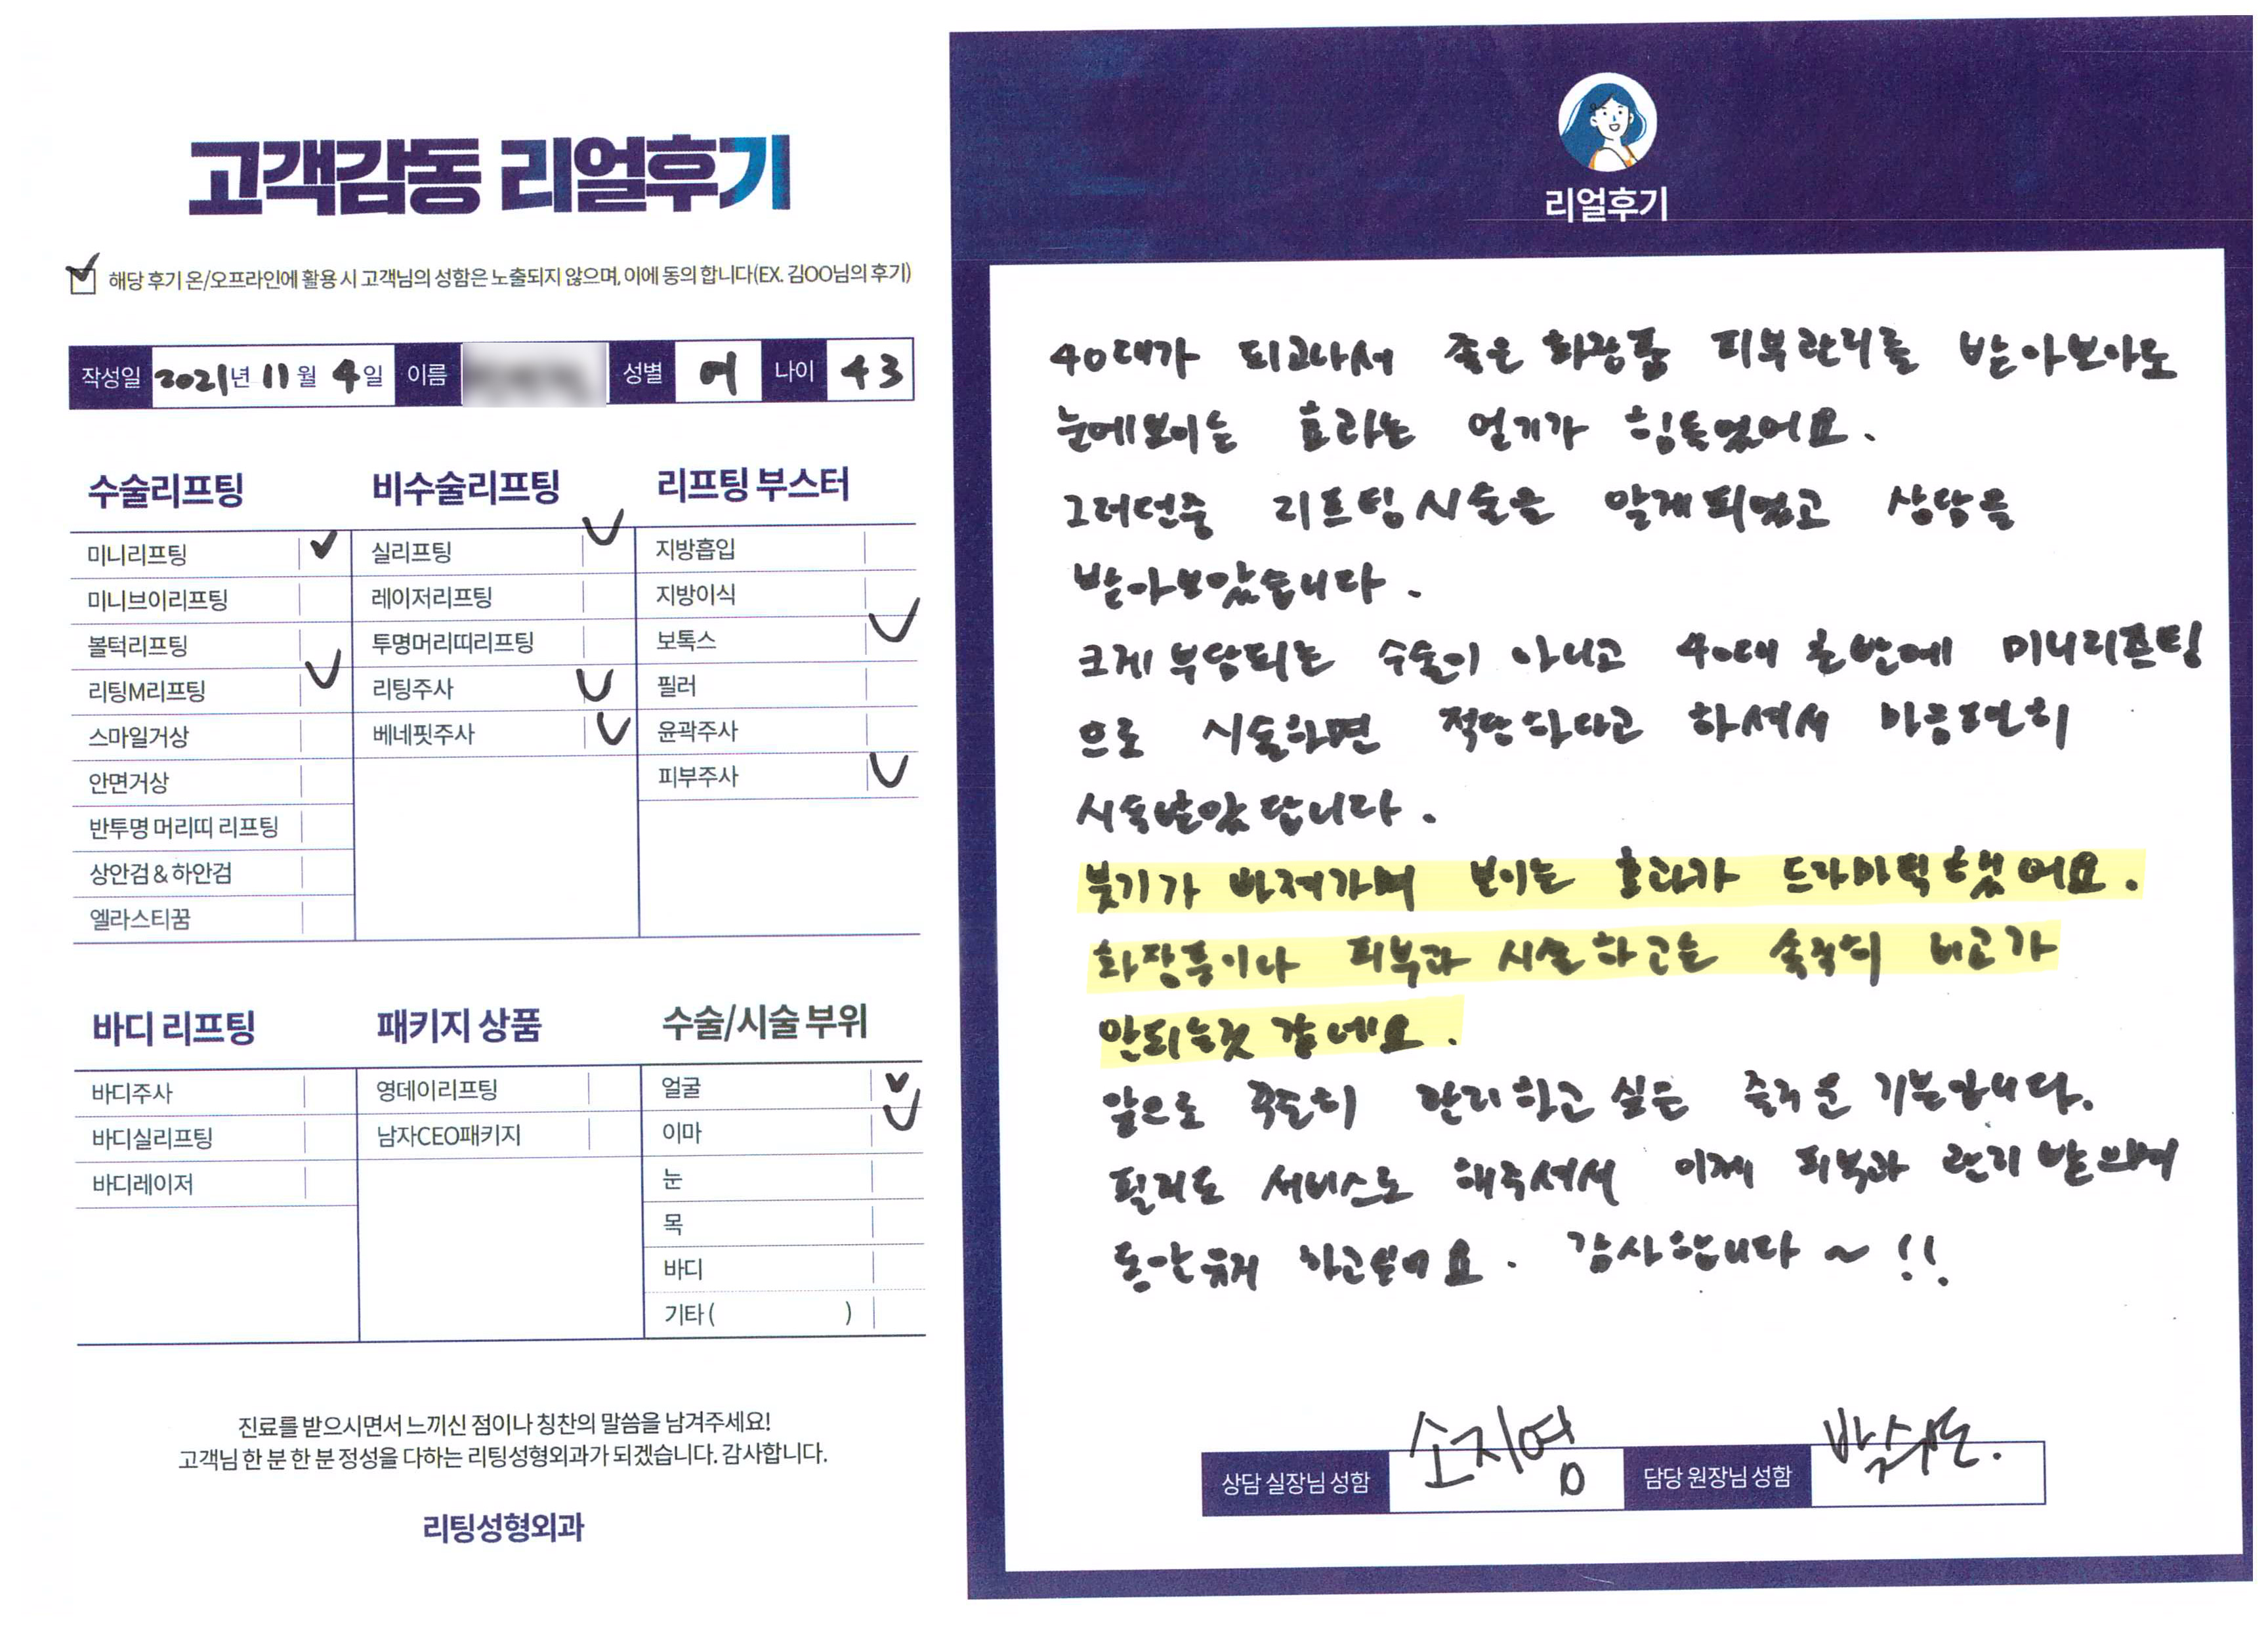 고객감동 리얼후기
해당 후기 온/오프라인에 활용 시 고객님의 성함은 노출되지 않으며, 이에 동의 합니다(EX. 김OO님의 후기)
작성일 2021년 11월 4일 이름 성별 여 나이 43
수술리프팅 비수술리프팅 리프팅 부스터
미니리프팅 실리프팅 지방흡입
미니브이리프팅 레이저리프팅 지방이식
볼턱리프팅 투명머리띠리프팅 보톡스
리팅M리프팅 리팅주사 필러
스마일거상 베네핏주사 윤곽주사
안면거상 피부주사
반투명 머리띠 리프팅
상안검 & 하안검
엘라스티꿈
바디 리프팅 패키지 상품 수술/시술 부위
바디주사 영데이리프팅 얼굴
바디실리프팅 남자CEO패키지 이마
바디레이저 눈
목
바디
기타 ( )
진료를 받으시면서 느끼신 점이나 칭찬의 말씀을 남겨주세요!
고객님 한 분 한 분 정성을 다하는 리팅성형외과가 되겠습니다. 감사합니다.
리팅성형외과
리얼후기
40대가 되고나서 좋은 화장품 피부관리를 받아보아도
눈에보이는 효과는 얻기가 힘들었어요.
그러던중 리프팅시술을 알게되었고 상담을
받아보았습니다.
크게 부담되는 수술이 아니고 40대 초반에 미니리프팅
으로 시술하면 적당하다고 하셔서 마음편히
시술받았답니다.
붓기가 빠져가며 보이는 효과가 드라마틱했어요.
화장품이나 피부과 시술하고는 솔직히 비교가
안되는것 같네요.
앞으로 꾸준히 관리하고 싶은 즐거운 기분입니다.
필러도 서비스로 해주셔서 이제 피부과 관리 받으며
동안유지 하고싶어요. 감사합니다~!!
상담 실장님 성함 소지영 담당 원장님 성함